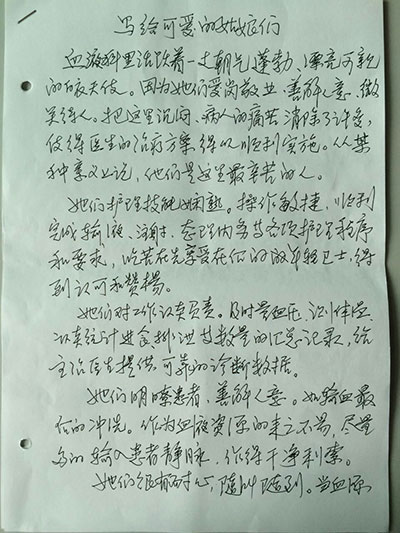 写给可爱的姑娘们
血液科里活跃着一支朝气蓬勃、漂亮可亲
的白衣天使。因为她们爱岗敬业、善解人意、微
笑待人。把这里沉闷、病人的痛苦消除了许多,
使得医生的治疗方案得以顺利实施。从某
种意义上说,他们是这里最辛苦的人。
她们护理技能娴熟。操作敏捷,顺利
完成输液、注射、整理内务等各项护理程序
和要求,吃苦在先享受在后的的年轻卫士,得
到认可和赞扬。
她们对工作认真负责。及时量血压,测体温,
认真统计进食排泄等数量的汇总记录,给
主治医生提供可靠的诊断数据。
她们明瞭患者,善解人意。如输血最
后的冲洗。作为血液资源的来之不易,尽量
多的输入患者静脉,作得干净利索。
她们很有耐心,随叫随到。当血尿